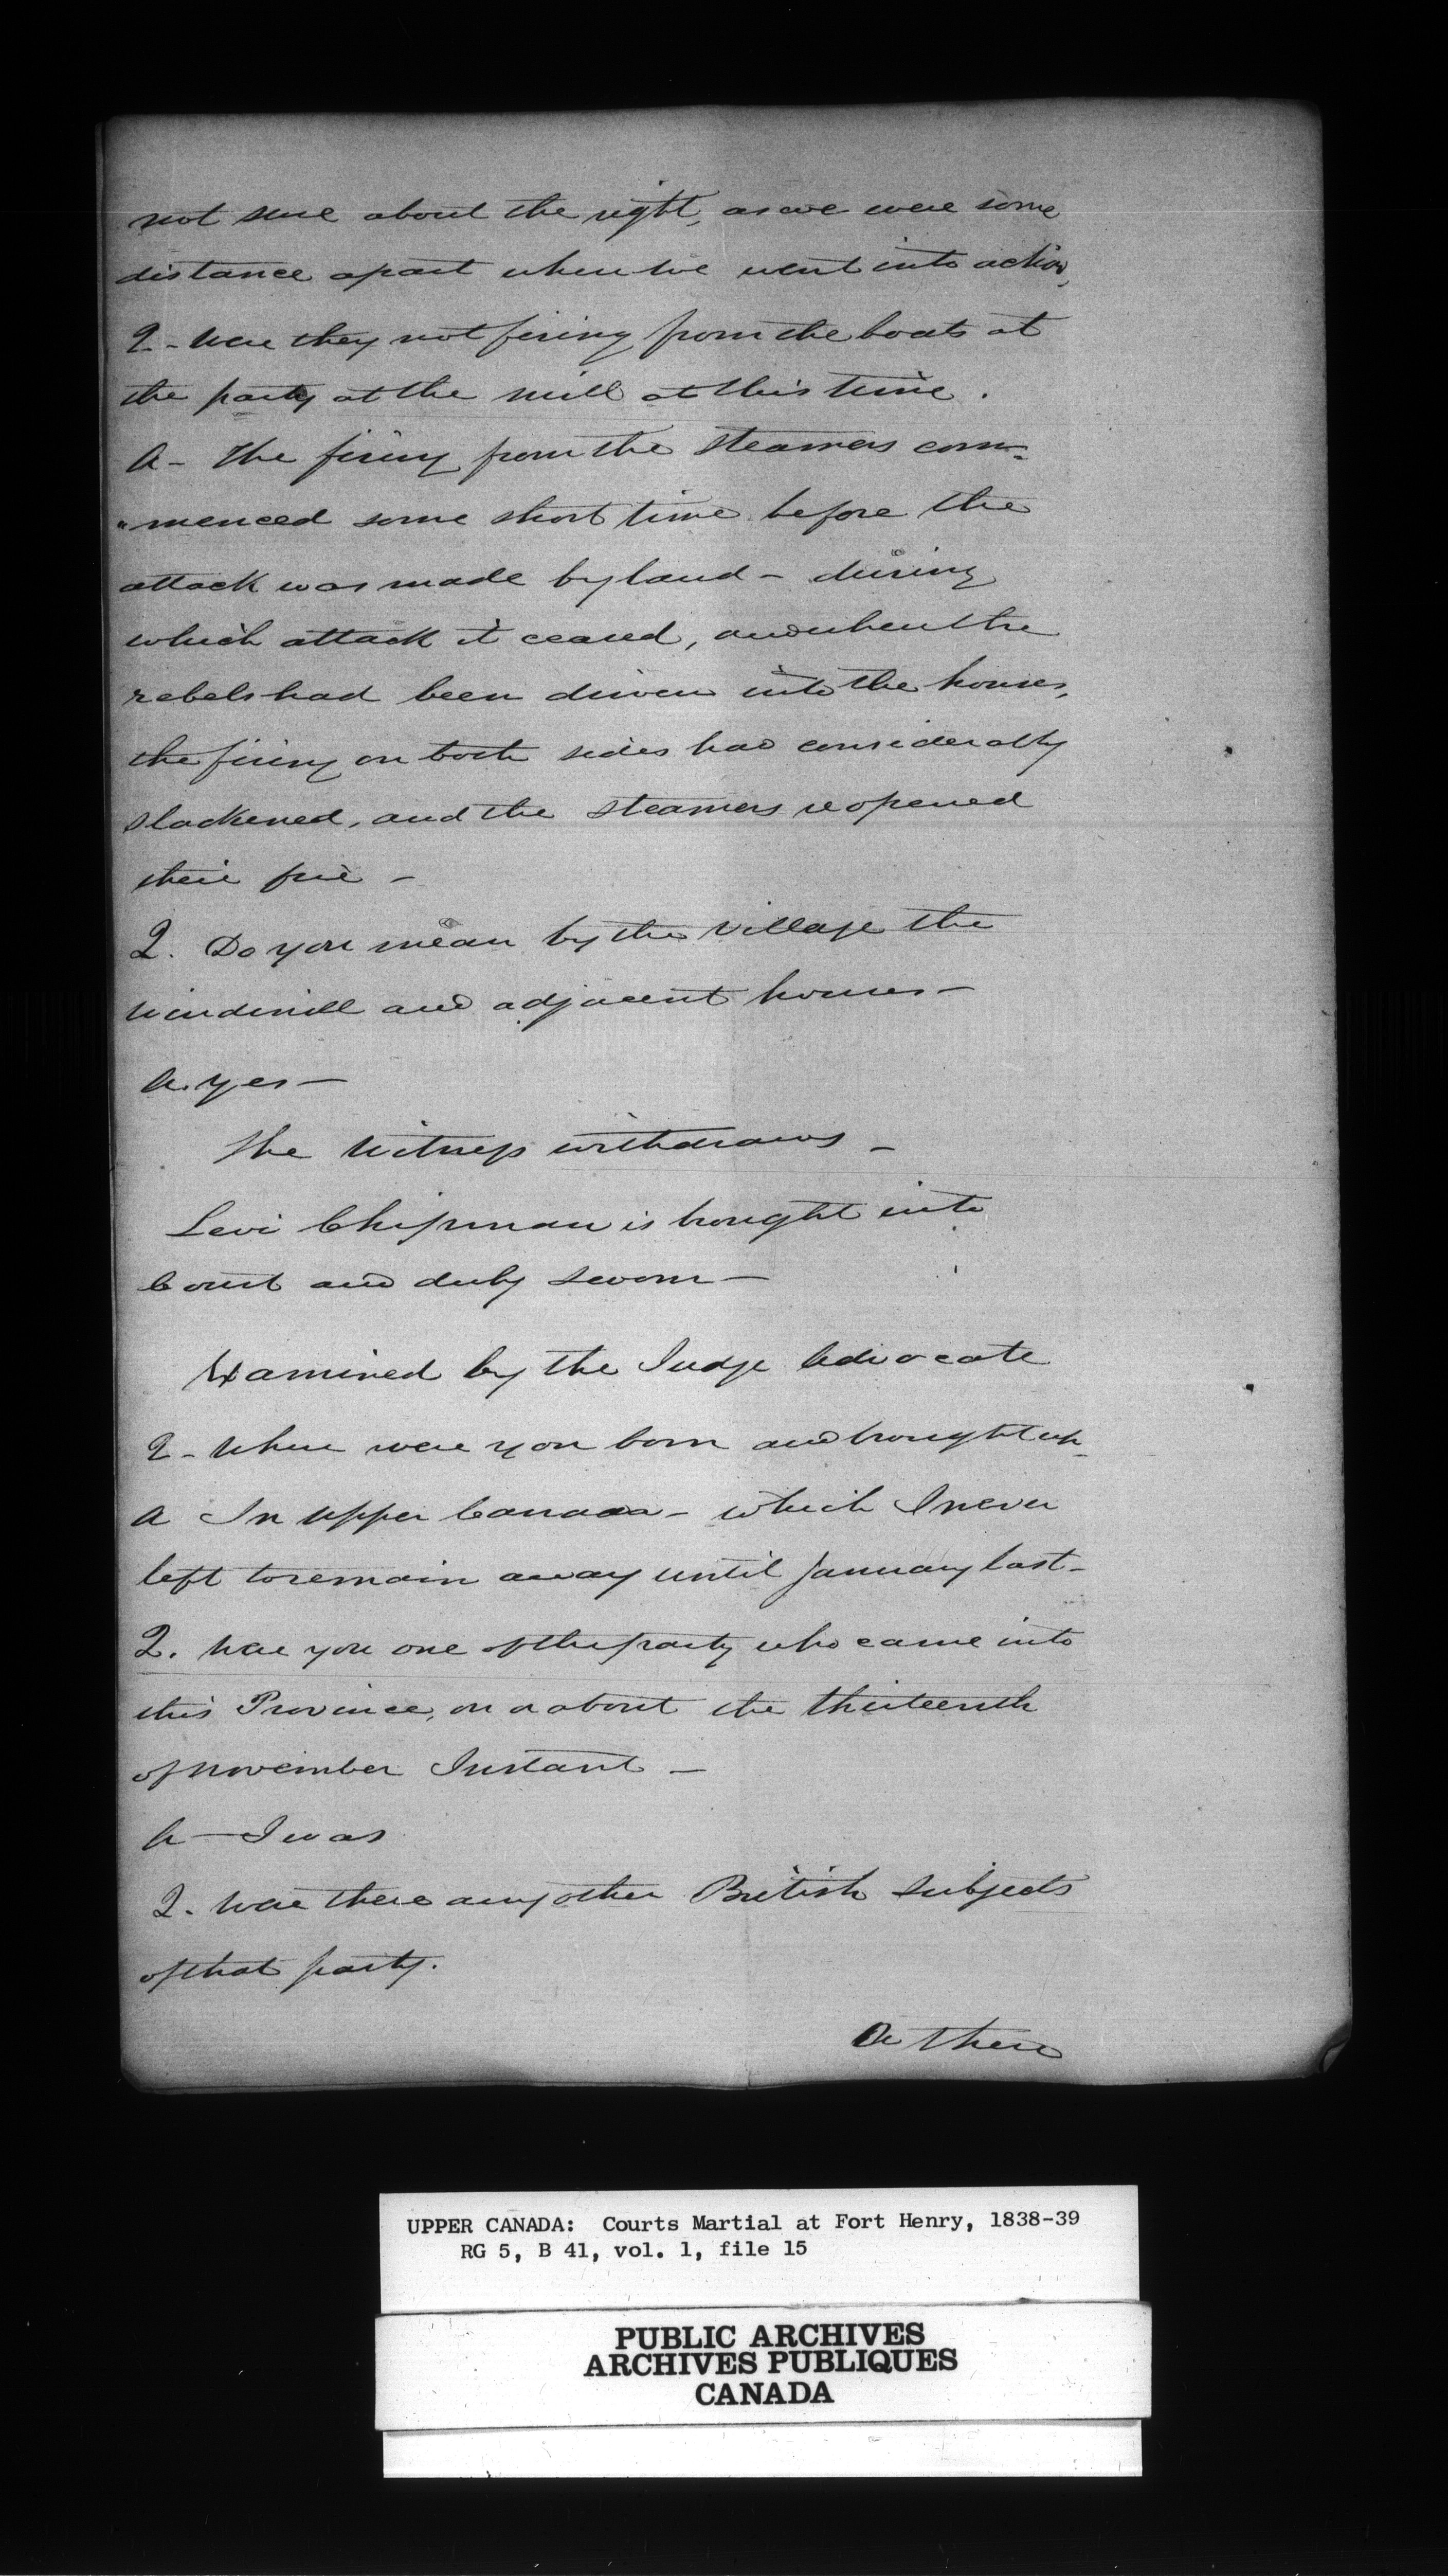 not sure about the right, as we were some
distance apart when we went into action,
Q - Were they not firing from the boats at
the party at the mill at this time.
A - The firing from the steamers com=
"menced some short time before the
attack was made by land - during
which attack it ceased, and when the
rebels had been driven into the houses,
the firing on both sides had considerably
slackened, and the steamers reopened
their fire -
Q. Do you mean by the village the
Windmill and adjacent houses -
A. yes -
The Witness withdraws -
Levi Chipman is brought into
Court and duly sworn -
Examined by the Judge Advocate
Q - Where were you born and brought up -
A In Upper Canada - which I never
left to remain away until January last -
Q. Were you one of the party who came into
this Province, on or about the thirteenth
of November Instant -
A - I was
Q. Were there any other British Subjects
of that party.
A There
UPPER CANADA: Courts Martial at Fort Henry, 1838-39
RG 5, B 41, vol. 1, file 15
PUBLIC ARCHIVES
ARCHIVES PUBLIQUES
CANADA